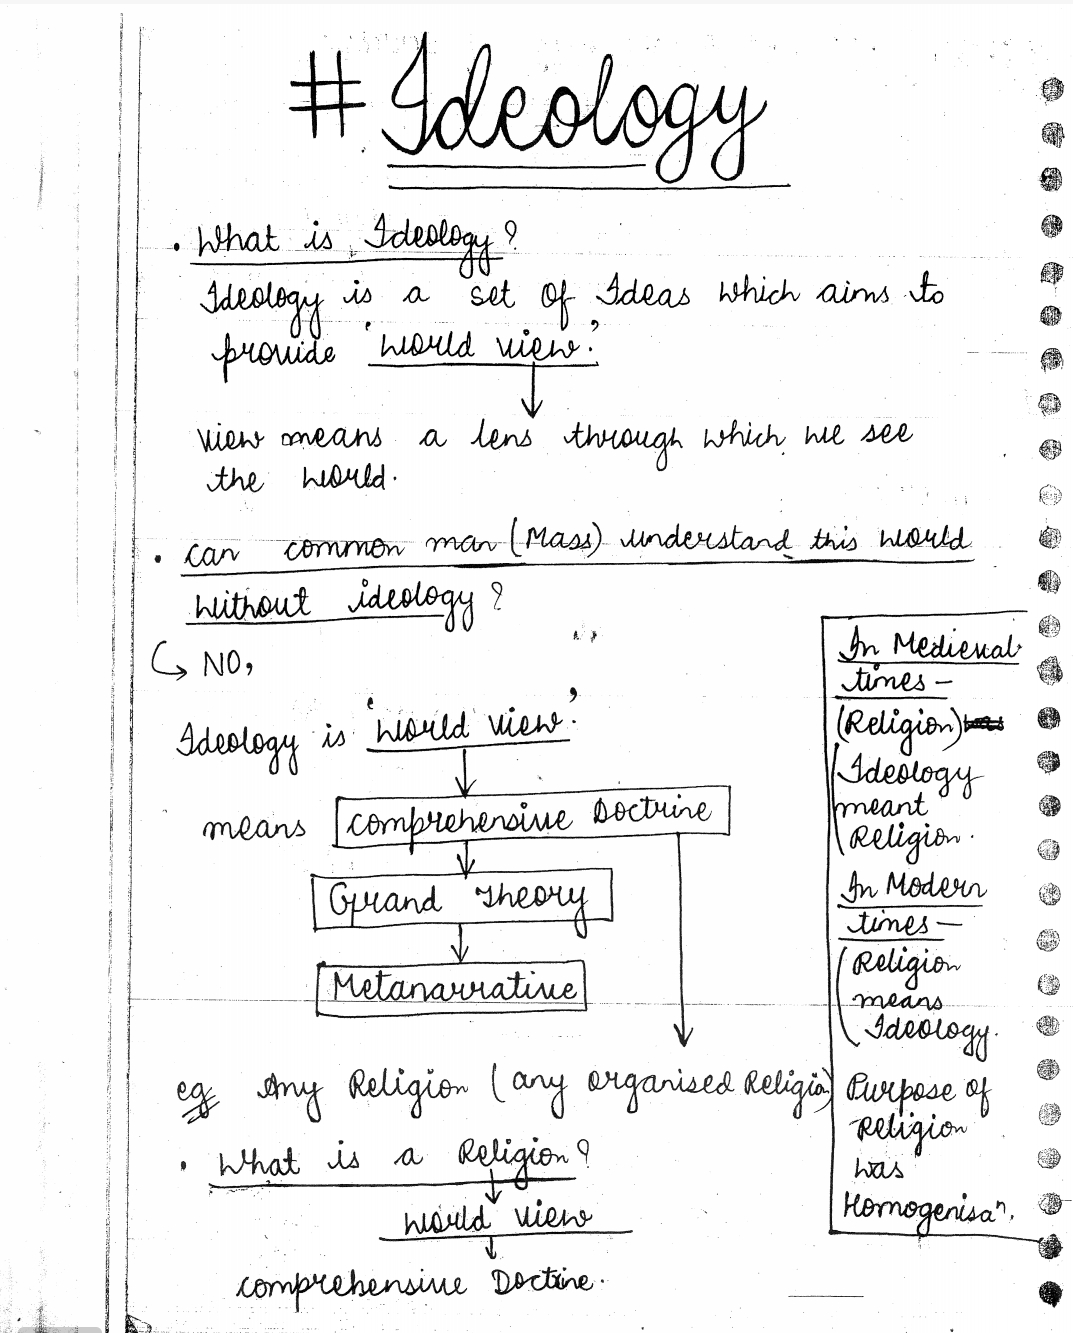 # Ideology
. What is Ideology?
Ideology is a set of Ideas which aims to
provide 'world view'.
view means a lens through which we see
the world.
. can common man (Mass) understand this world
without ideology?
NO,
Ideology is 'world view'.
means comprehensive Doctrine
Grand Theory
Metanarrative
eg Any Religion (any organised Religion)
. What is a Religion?
world view
comprehensive Doctrine.
In Medieval
times -
(Religion)
Ideology
meant
Religion.
In Modern
times -
Religion
means
Ideology.
Purpose of
Religion
was
Homogenisaⁿ.